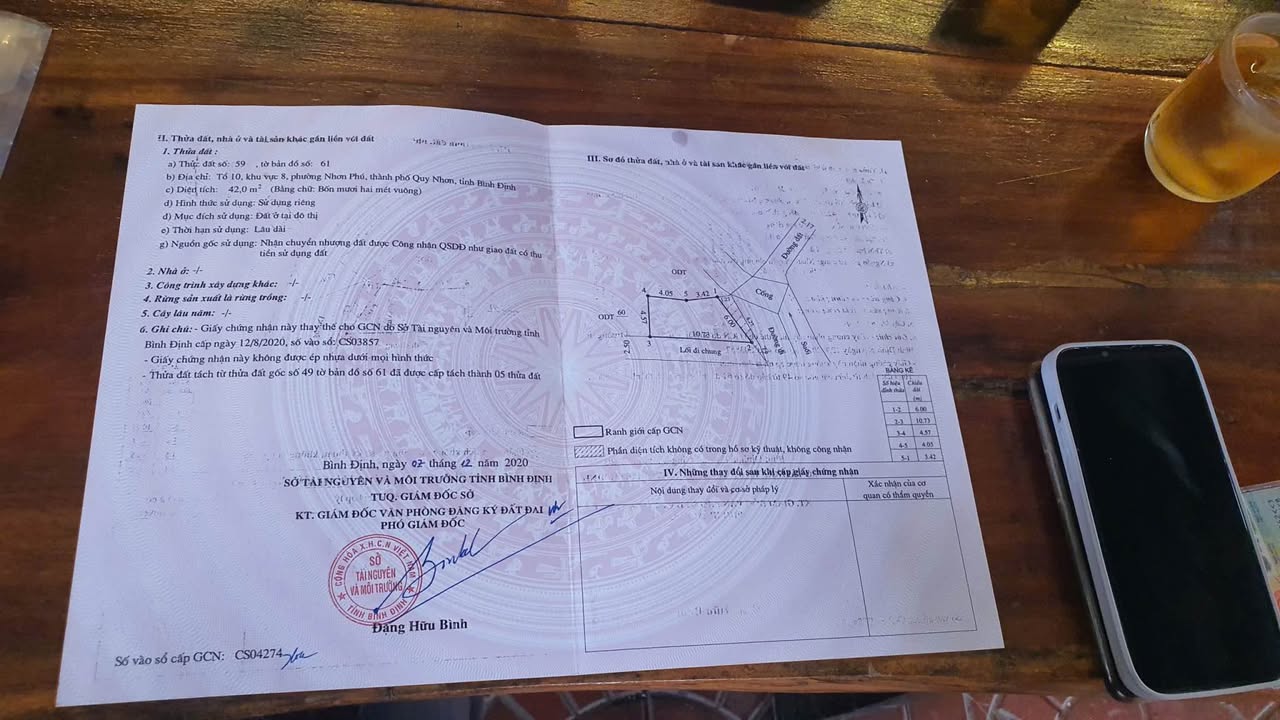 II. Thửa đất, nhà ở và tài sản khác gắn liền với đất
1. Thửa đất :
a) Thửa đất số: 59 , tờ bản đồ số: 61
b) Địa chỉ: Tổ 10, khu vực 8, phường Nhơn Phú, thành phố Quy Nhơn, tỉnh Bình Định
c) Diện tích: 42,0 m² (Bằng chữ: Bốn mươi hai mét vuông)
d) Hình thức sử dụng: Sử dụng riêng
đ) Mục đích sử dụng: Đất ở tại đô thị
e) Thời hạn sử dụng: Lâu dài
g) Nguồn gốc sử dụng: Nhận chuyển nhượng đất được Công nhận QSDĐ như giao đất có thu
tiền sử dụng đất
2. Nhà ở: -/-
3. Công trình xây dựng khác: -/-
4. Rừng sản xuất là rừng trồng: -/-
5. Cây lâu năm: -/-
6. Ghi chú: - Giấy chứng nhận này thay thế cho GCN do Sở Tài nguyên và Môi trường tỉnh
Bình Định cấp ngày 12/8/2020, số vào sổ: CS03857
- Giấy chứng nhận này không được ép nhựa dưới mọi hình thức
- Thửa đất tách từ thửa đất gốc số 49 tờ bản đồ số 61 đã được cấp tách thành 05 thửa đất
Bình Định, ngày 07 tháng 12 năm 2020
SỞ TÀI NGUYÊN VÀ MÔI TRƯỜNG TỈNH BÌNH ĐỊNH
TUQ. GIÁM ĐỐC SỞ
KT. GIÁM ĐỐC VĂN PHÒNG ĐĂNG KÝ ĐẤT ĐAI
PHÓ GIÁM ĐỐC
CỘNG HÒA X.H.C.N VIỆT NAM
SỞ
TÀI NGUYÊN
VÀ MÔI TRƯỜNG
TỈNH BÌNH ĐỊNH
Đặng Hữu Bình
Số vào sổ cấp GCN: CS04274
III. Sơ đồ thửa đất, nhà ở và tài sản khác gắn liền với đất
2.17
Đường đi
ODT
4 4.05 5 3.42 1
Cống
ODT 60
4.57
6.00
10.73
3
2
2.50
Lối đi chung
Đường đi
Suối
BẢNG KÊ
Số hiệu đỉnh thửa Chiều dài (m)
1-2 6.00
2-3 10.73
3-4 4.57
4-5 4.05
5-1 3.42
Ranh giới cấp GCN
Phần diện tích không có trong hồ sơ kỹ thuật, không công nhận
IV. Những thay đổi sau khi cấp giấy chứng nhận
Nội dung thay đổi và cơ sở pháp lý
Xác nhận của cơ
quan có thẩm quyền